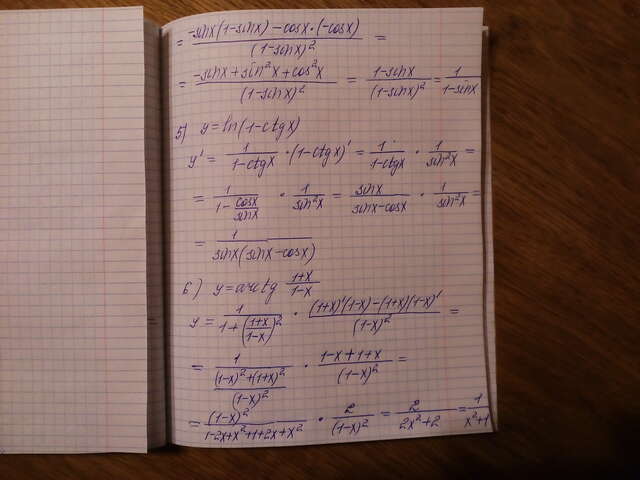 = (-sinx(1-sinx)-cosx·(-cosx))/(1-sinx)² =
= (-sinx+sin²x+cos²x)/(1-sinx)² = (1-sinx)/(1-sinx)² = 1/(1-sinx)
5) y=ln(1-ctgx)
y' = 1/(1-ctgx) · (1-ctgx)' = 1/(1-ctgx) · 1/sin²x =
= 1/(1-cosx/sinx) · 1/sin²x = sinx/(sinx-cosx) · 1/sin²x =
= 1/(sinx(sinx-cosx))
6) y=arctg (1+x)/(1-x)
y = 1/(1+((1+x)/(1-x))²) · ((1+x)'(1-x)-(1+x)(1-x)')/(1-x)² =
= 1/(((1-x)²+(1+x)²)/(1-x)²) · (1-x+1+x)/(1-x)² =
= (1-x)²/(1-2x+x²+1+2x+x²) · 2/(1-x)² = 2/(2x²+2) = 1/(x²+1)